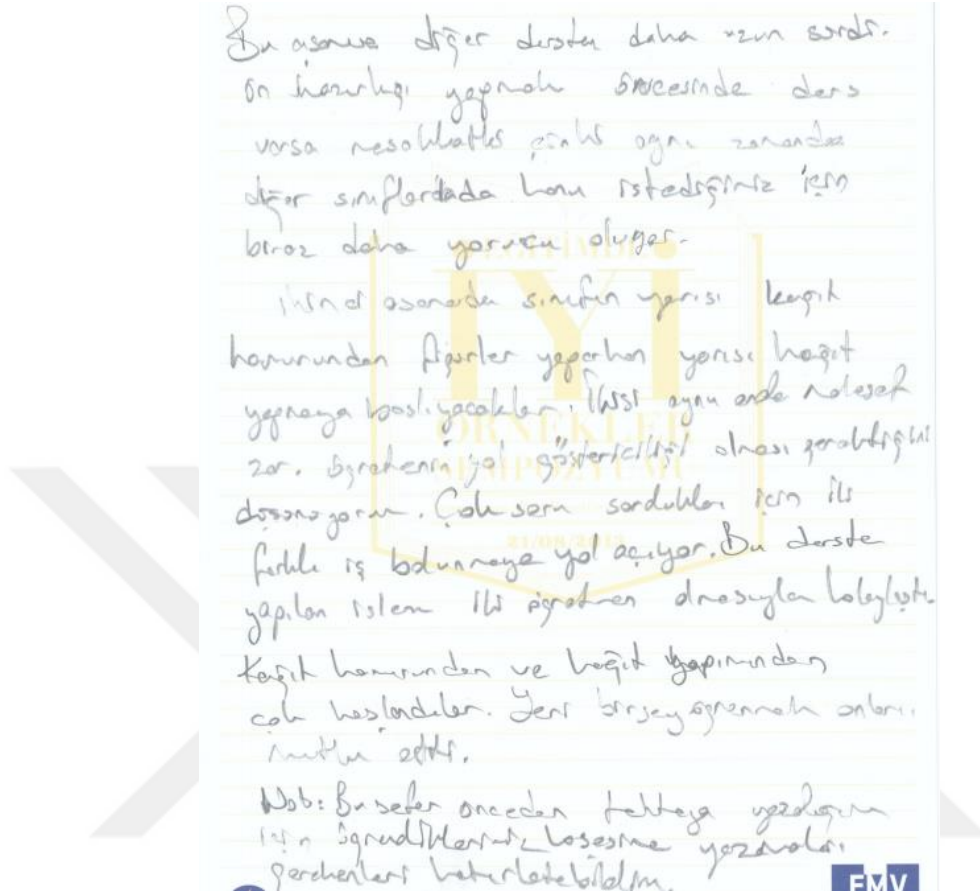 Bu aşama diğer dersten daha uzun sürdü.
Ön hazırlığı yapmak öncesinde ders
varsa meşakkatli çünkü aynı zamanda
diğer sınıflardada konu istediğiniz için
biraz daha yorucu oluyor.
İkinci aşamada sınıfın yarısı kağıt
hamurundan figürler yaparken yarısı kağıt
yapmaya başlıyacaklar. İkisi aynı anda malesef
zor. öğretmenin yol göstericiliği olması gerektiğini
düşünüyorum. Çok soru sordukları için iki
farklı iş bölünmeye yol açıyor. Bu derste
yapılan işlem iki öğretmen olmasıyla kolaylaştı.
Kağıt hamurundan ve kağıt yapımından
çok hoşlandılar. Yeni birşey öğrenmek onları
mutlu etti.
Not: Bu sefer önceden tahtaya yazdığım
için öğrendiklerimiz köşesine yazmaları
gerekenleri hatırlatabildim.
EĞİTİMDE
İYİ
ÖRNEKLER
SEMPOZYUMU
EMV